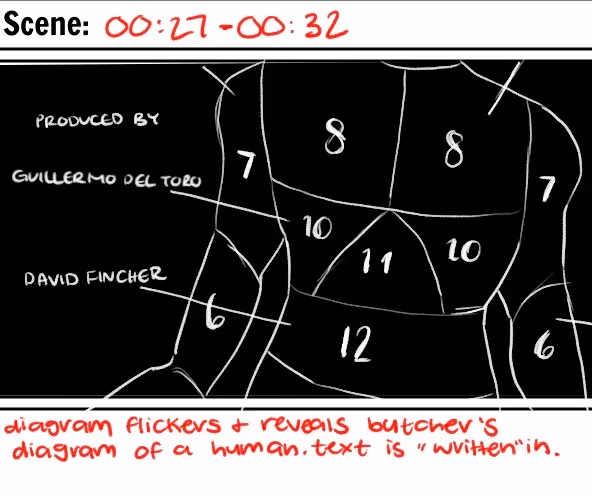 Scene: 00:27-00:32
PRODUCED BY
8 8
7 7
GUILLERMO DEL TORO
10 11 10
DAVID FINCHER
6 12 6
diagram flickers + reveals butcher's
diagram of a human. text is "written" in.